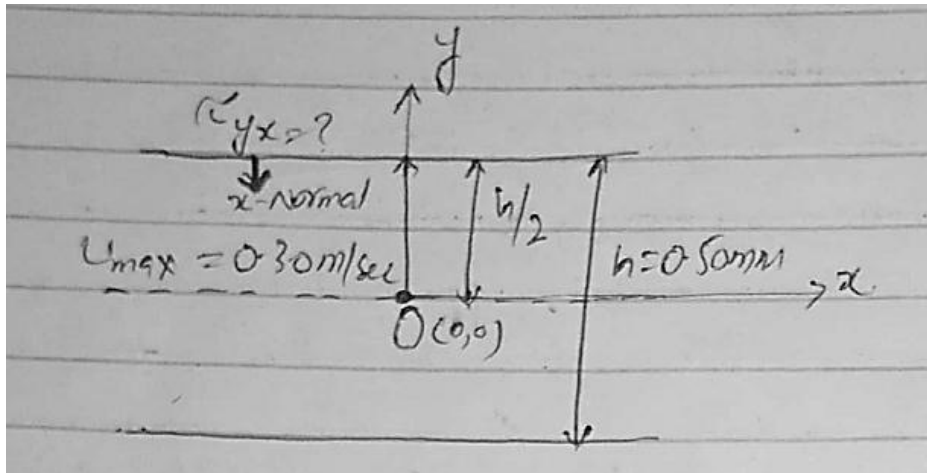 y
τyx = ?
x-Normal
h/2
Umax = 0.30m/sec
h=0.50mm
x
O(0,0)